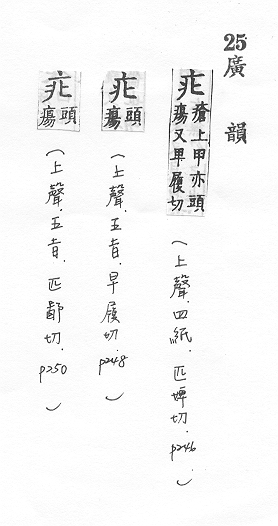 25
廣韻
疕 瘡上甲亦頭瘍又卑履切
(上聲.四紙.匹婢切.p246.)
疕 頭瘍
(上聲.五旨.卑履切.p248)
疕 頭瘍
(上聲.五旨.匹鄙切.p250)